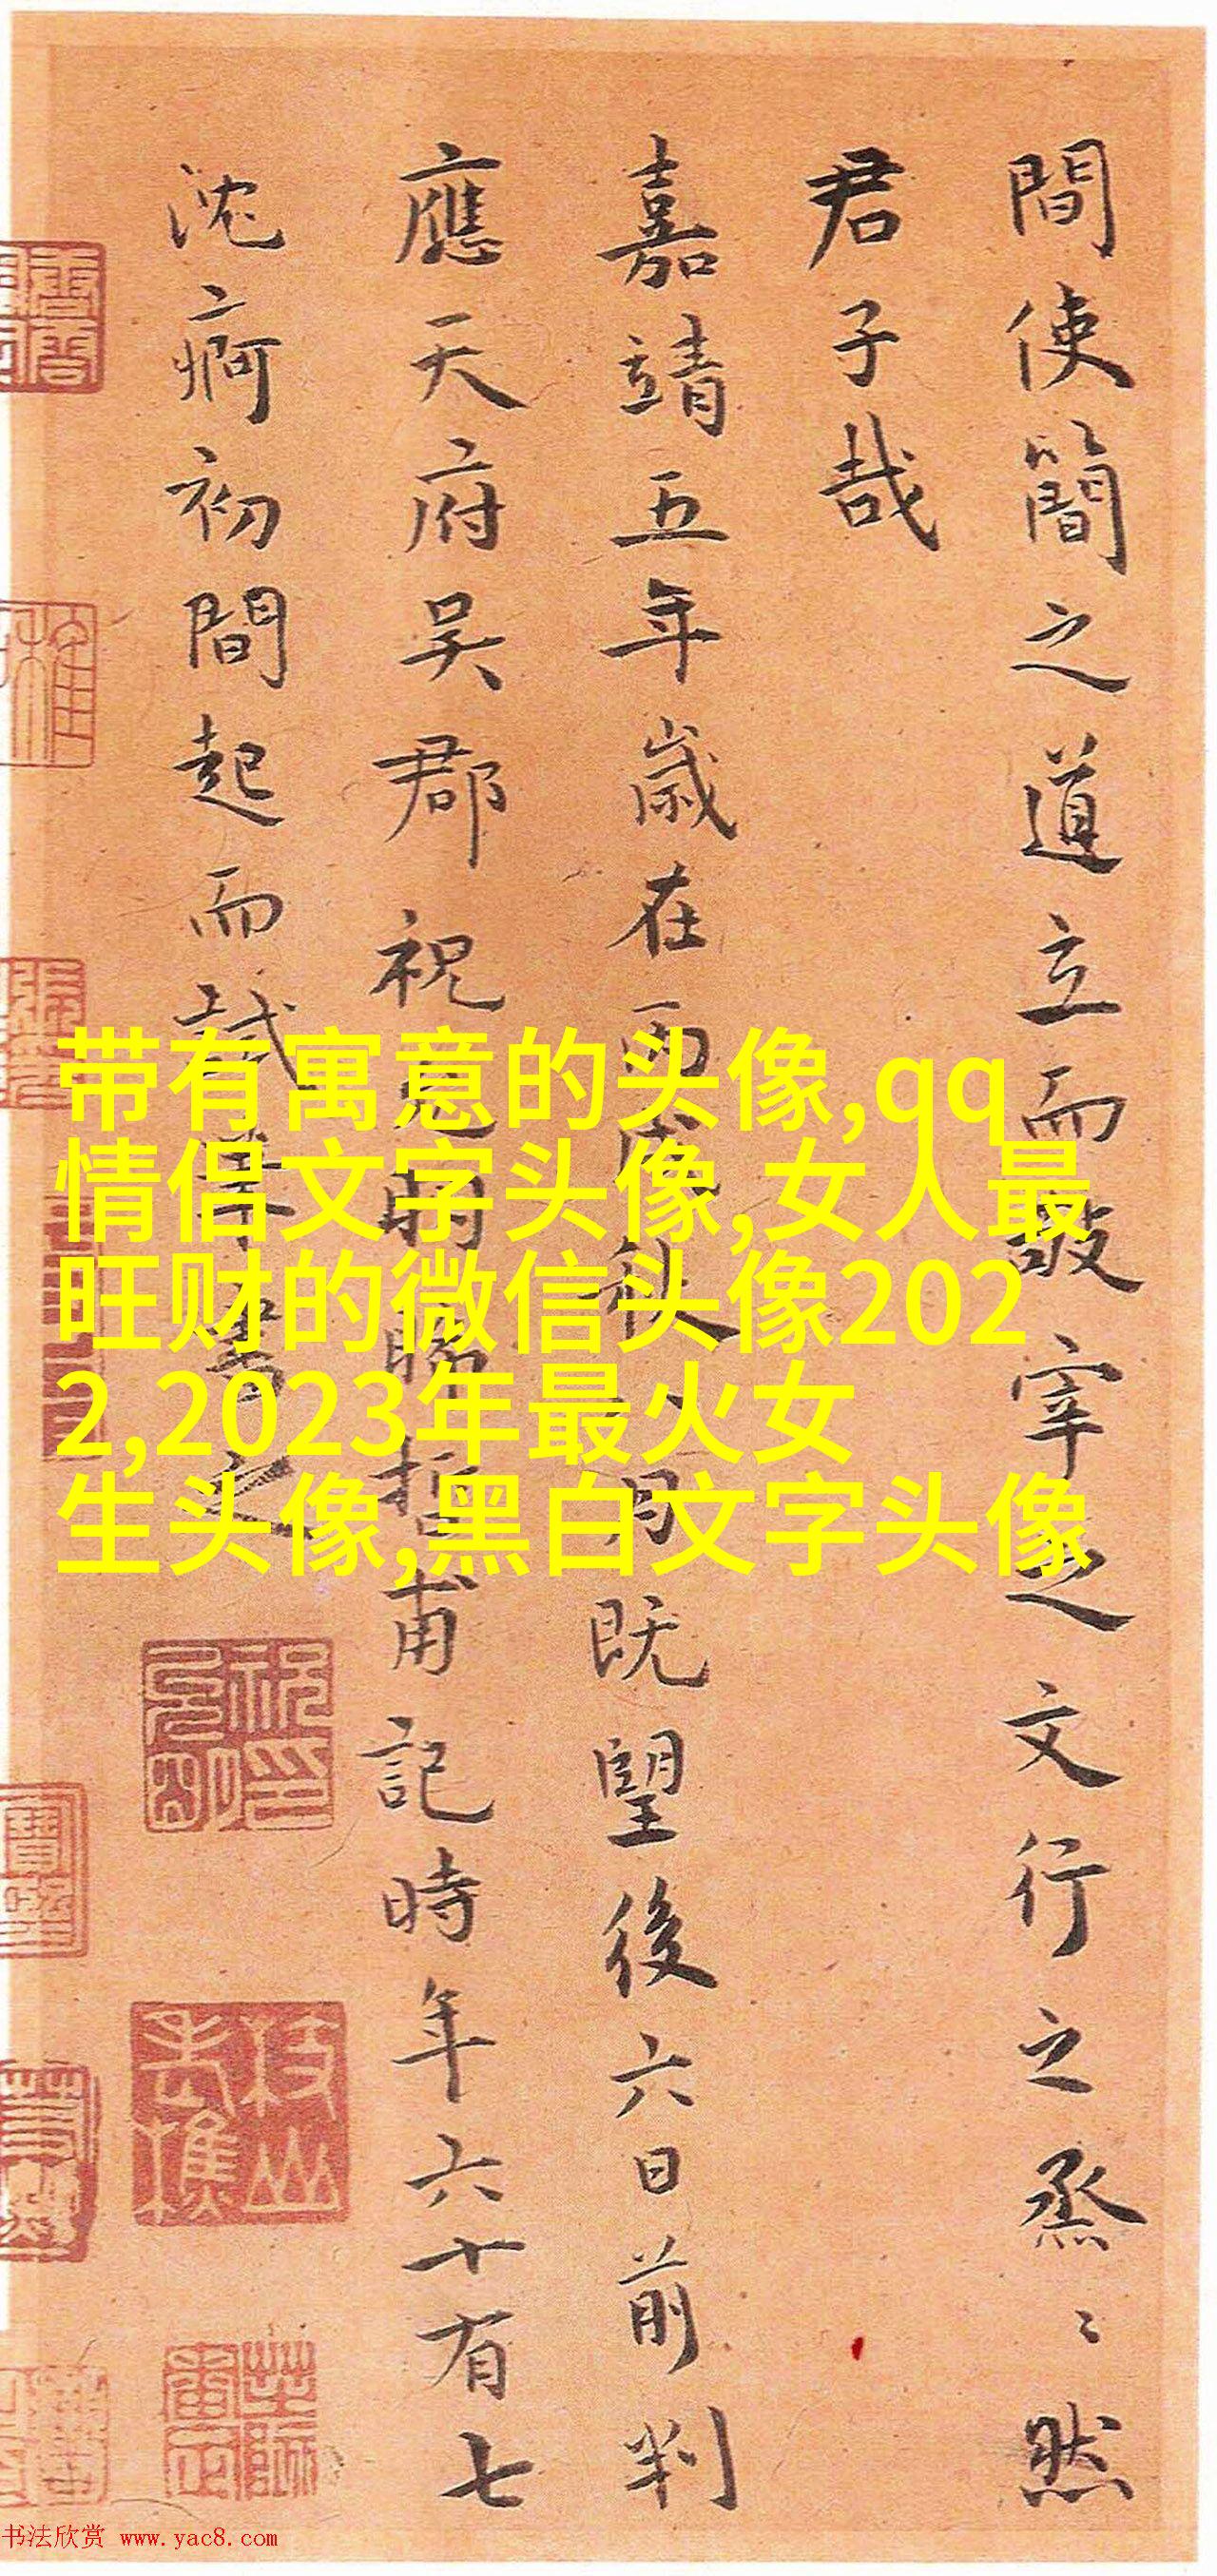 間使簡之道立而敬宰之文行之烝〻然
君子哉
嘉靖五年歲在丙戌秋八月既望後六日前判
應天府吴郡祝允明睎哲甫記時年六十有七
沈痾初間起而試筆書之
带有寓意的头像,qq
情侣文字头像,女人最
旺财的微信头像202
2,2023年最火女
生头像,黑白文字头像
祝允明印
枝山老樵
书法欣赏 www.yac8.com